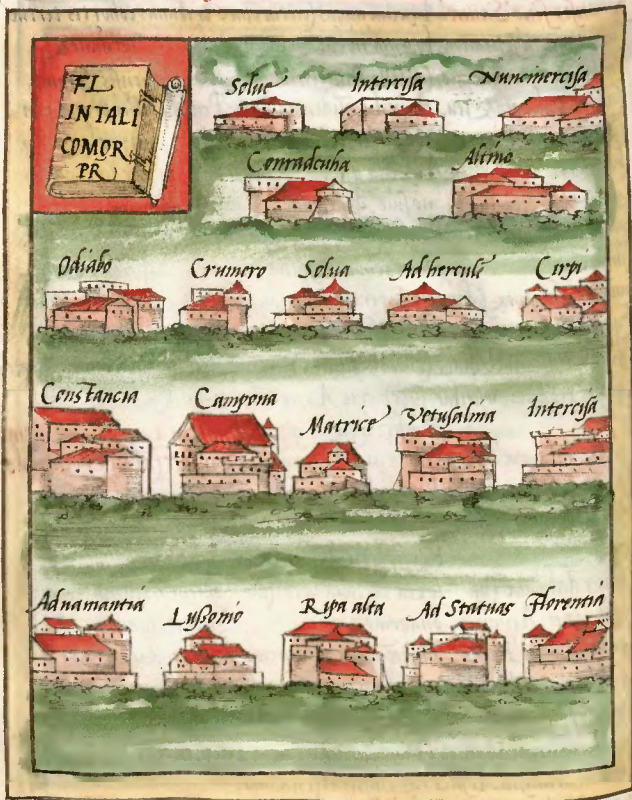 FL
INTALI
COMOR
PR
Solue Intercisa Nuncinercisa
Conradcuha Altino
Odiabo Crumero Solua Ad hercule Cirpi
Constancia Campona Matrice Vetusalina Intercisa
Adnamantia Lußonio Ripa alta Ad Statuas Florentia